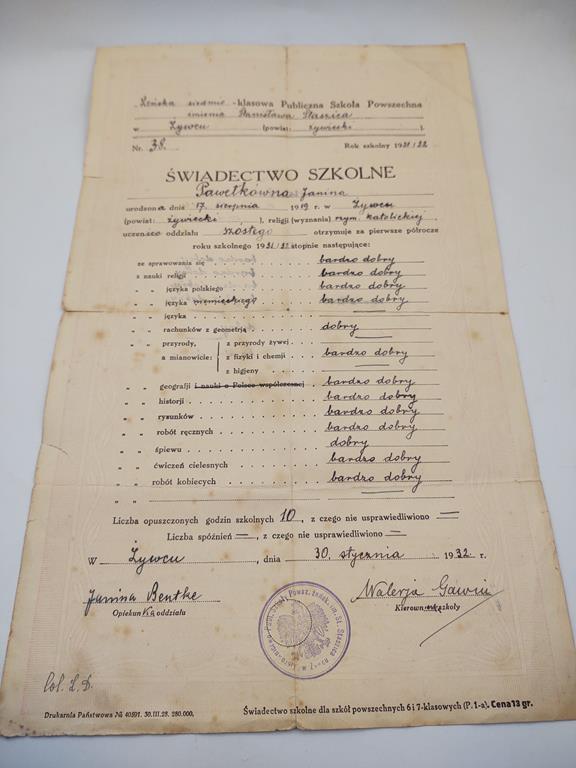 Żeńska siedmio-klasowa Publiczna Szkoła Powszechna
imienia Stanisława Staszica
w Żywcu (powiat: żywiecki ).
Nr. 38. Rok szkolny 1931/32
ŚWIADECTWO SZKOLNE
Pawełkówna Janina
urodzona dnia 17. sierpnia 1919 r. w Żywcu
(powiat: żywiecki ), religji (wyznania) rzym. katolickiej
uczenica oddziału szóstego otrzymuje za pierwsze półrocze
roku szkolnego 1931/32 stopnie następujące:
ze sprawowania się bardzo dobry
z nauki religji bardzo dobry
„ „ języka polskiego bardzo dobry
„ „ języka niemieckiego bardzo dobry
„ „ języka —
„ „ rachunków z geometrją dobry
„ „ przyrody, z przyrody żywej —
a mianowicie: z fizyki i chemji bardzo dobry
z higjeny —
„ „ geografji i nauki o Polsce współczesnej bardzo dobry
„ „ historji bardzo dobry
„ „ rysunków bardzo dobry
„ „ robót ręcznych bardzo dobry
„ „ śpiewu dobry
„ „ ćwiczeń cielesnych bardzo dobry
„ „ robót kobiecych bardzo dobry
„ „ —
Liczba opuszczonych godzin szkolnych 10, z czego nie usprawiedliwiono —
Liczba spóźnień —, z czego nie usprawiedliwiono —
W Żywcu, dnia 30. stycznia 1932. r.
Janina Bentke Walerja
Opiekunka oddziału Kierown. szkoły
Col. Ł. D.
Drukarnia Państwowa № 40591. 30.III.28. 280,000. Świadectwo szkolne dla szkół powszechnych 6 i 7-klasowych (P. 1-a). Cena 13 gr.